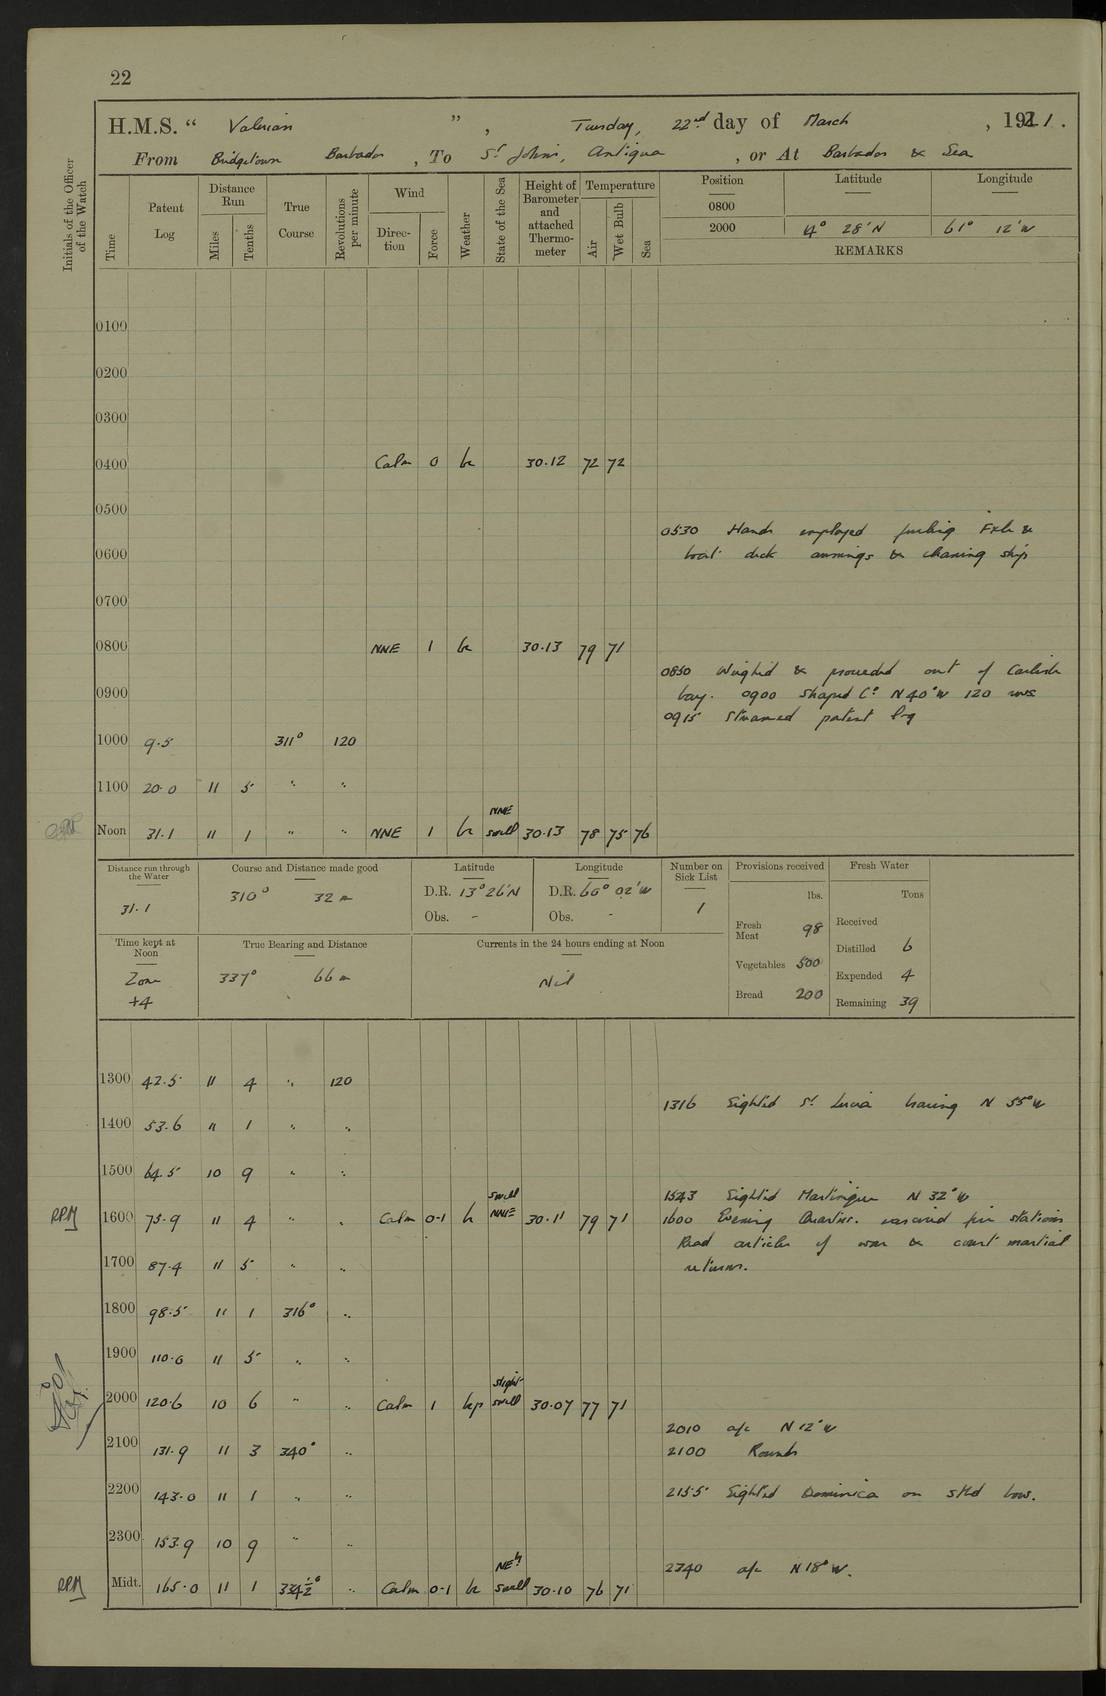 22
H.M.S. “ Valerian ” , Tuesday, 22nd day of March , 1921 .
From Bridgetown Barbados , To St Johns, Antigua , or At Barbados & Sea
Initials of the Officer of the Watch
Time
Patent Log
Distance Run
Miles
Tenths
True Course
Revolutions per minute
Wind
Direc-tion
Force
Weather
State of the Sea
Height of Barometer and attached Thermo-meter
Temperature
Air
Wet Bulb
Sea
Position Latitude Longitude
0800
2000 14° 28'N 61° 12'W
REMARKS
0100
0200
0300
0400 Calm 0 bc 30.12 72 72
0500
0530 Hands employed furling Fxle &
0600 boat deck awnings & cleaning ship
0700
0800 NNE 1 bc 30.13 79 71
0850 Weighed & proceeded out of Carlisle
0900 bay. 0900 Shaped Co N40°W 120 revs
0915 Streamed patent log
1000 9.5 311° 120
1100 20.0 11 5 " "
Noon 31.1 11 1 " " NNE 1 bc NNE swell 30.13 78 75 76
Distance run through the Water
31.1
Course and Distance made good
310° 32 m
Latitude
D.R. 13°26'N
Obs. -
Longitude
D.R. 60° 02'W
Obs. -
Number on Sick List
1
Provisions received
lbs.
Fresh Meat 98
Vegetables 500
Bread 200
Fresh Water
Tons
Received
Distilled 6
Expended 4
Remaining 39
Time kept at Noon
Zone
+4
True Bearing and Distance
337° 66 m
Currents in the 24 hours ending at Noon
Nil
1300 42.5 11 4 " 120
1316 Sighted St Lucia bearing N 55°W
1400 53.6 11 1 " "
1500 64.5 10 9 " "
1543 Sighted Martinique N 32°W
RPM 1600 75.9 11 4 " " Calm 0-1 bc swell NNE 30.11 79 71 1600 Evening Quarters. exercised fire stations
Read articles of war & court martial
1700 87.4 11 5 " " returns.
1800 98.5 11 1 316° "
1900 110.0 11 5 " "
2000 120.6 10 6 " " Calm 1 bcp slight swell 30.07 77 71
2010 a/c N12°W
2100 131.9 11 3 340° " 2100 Rounds
2200 143.0 11 1 " " 2155 Sighted Dominica on stbd bow.
2300 153.9 10 9 " "
2340 a/c N18°W.
RPM Midt. 165.0 11 1 334½° " Calm 0-1 bc NEly swell 30.10 76 71